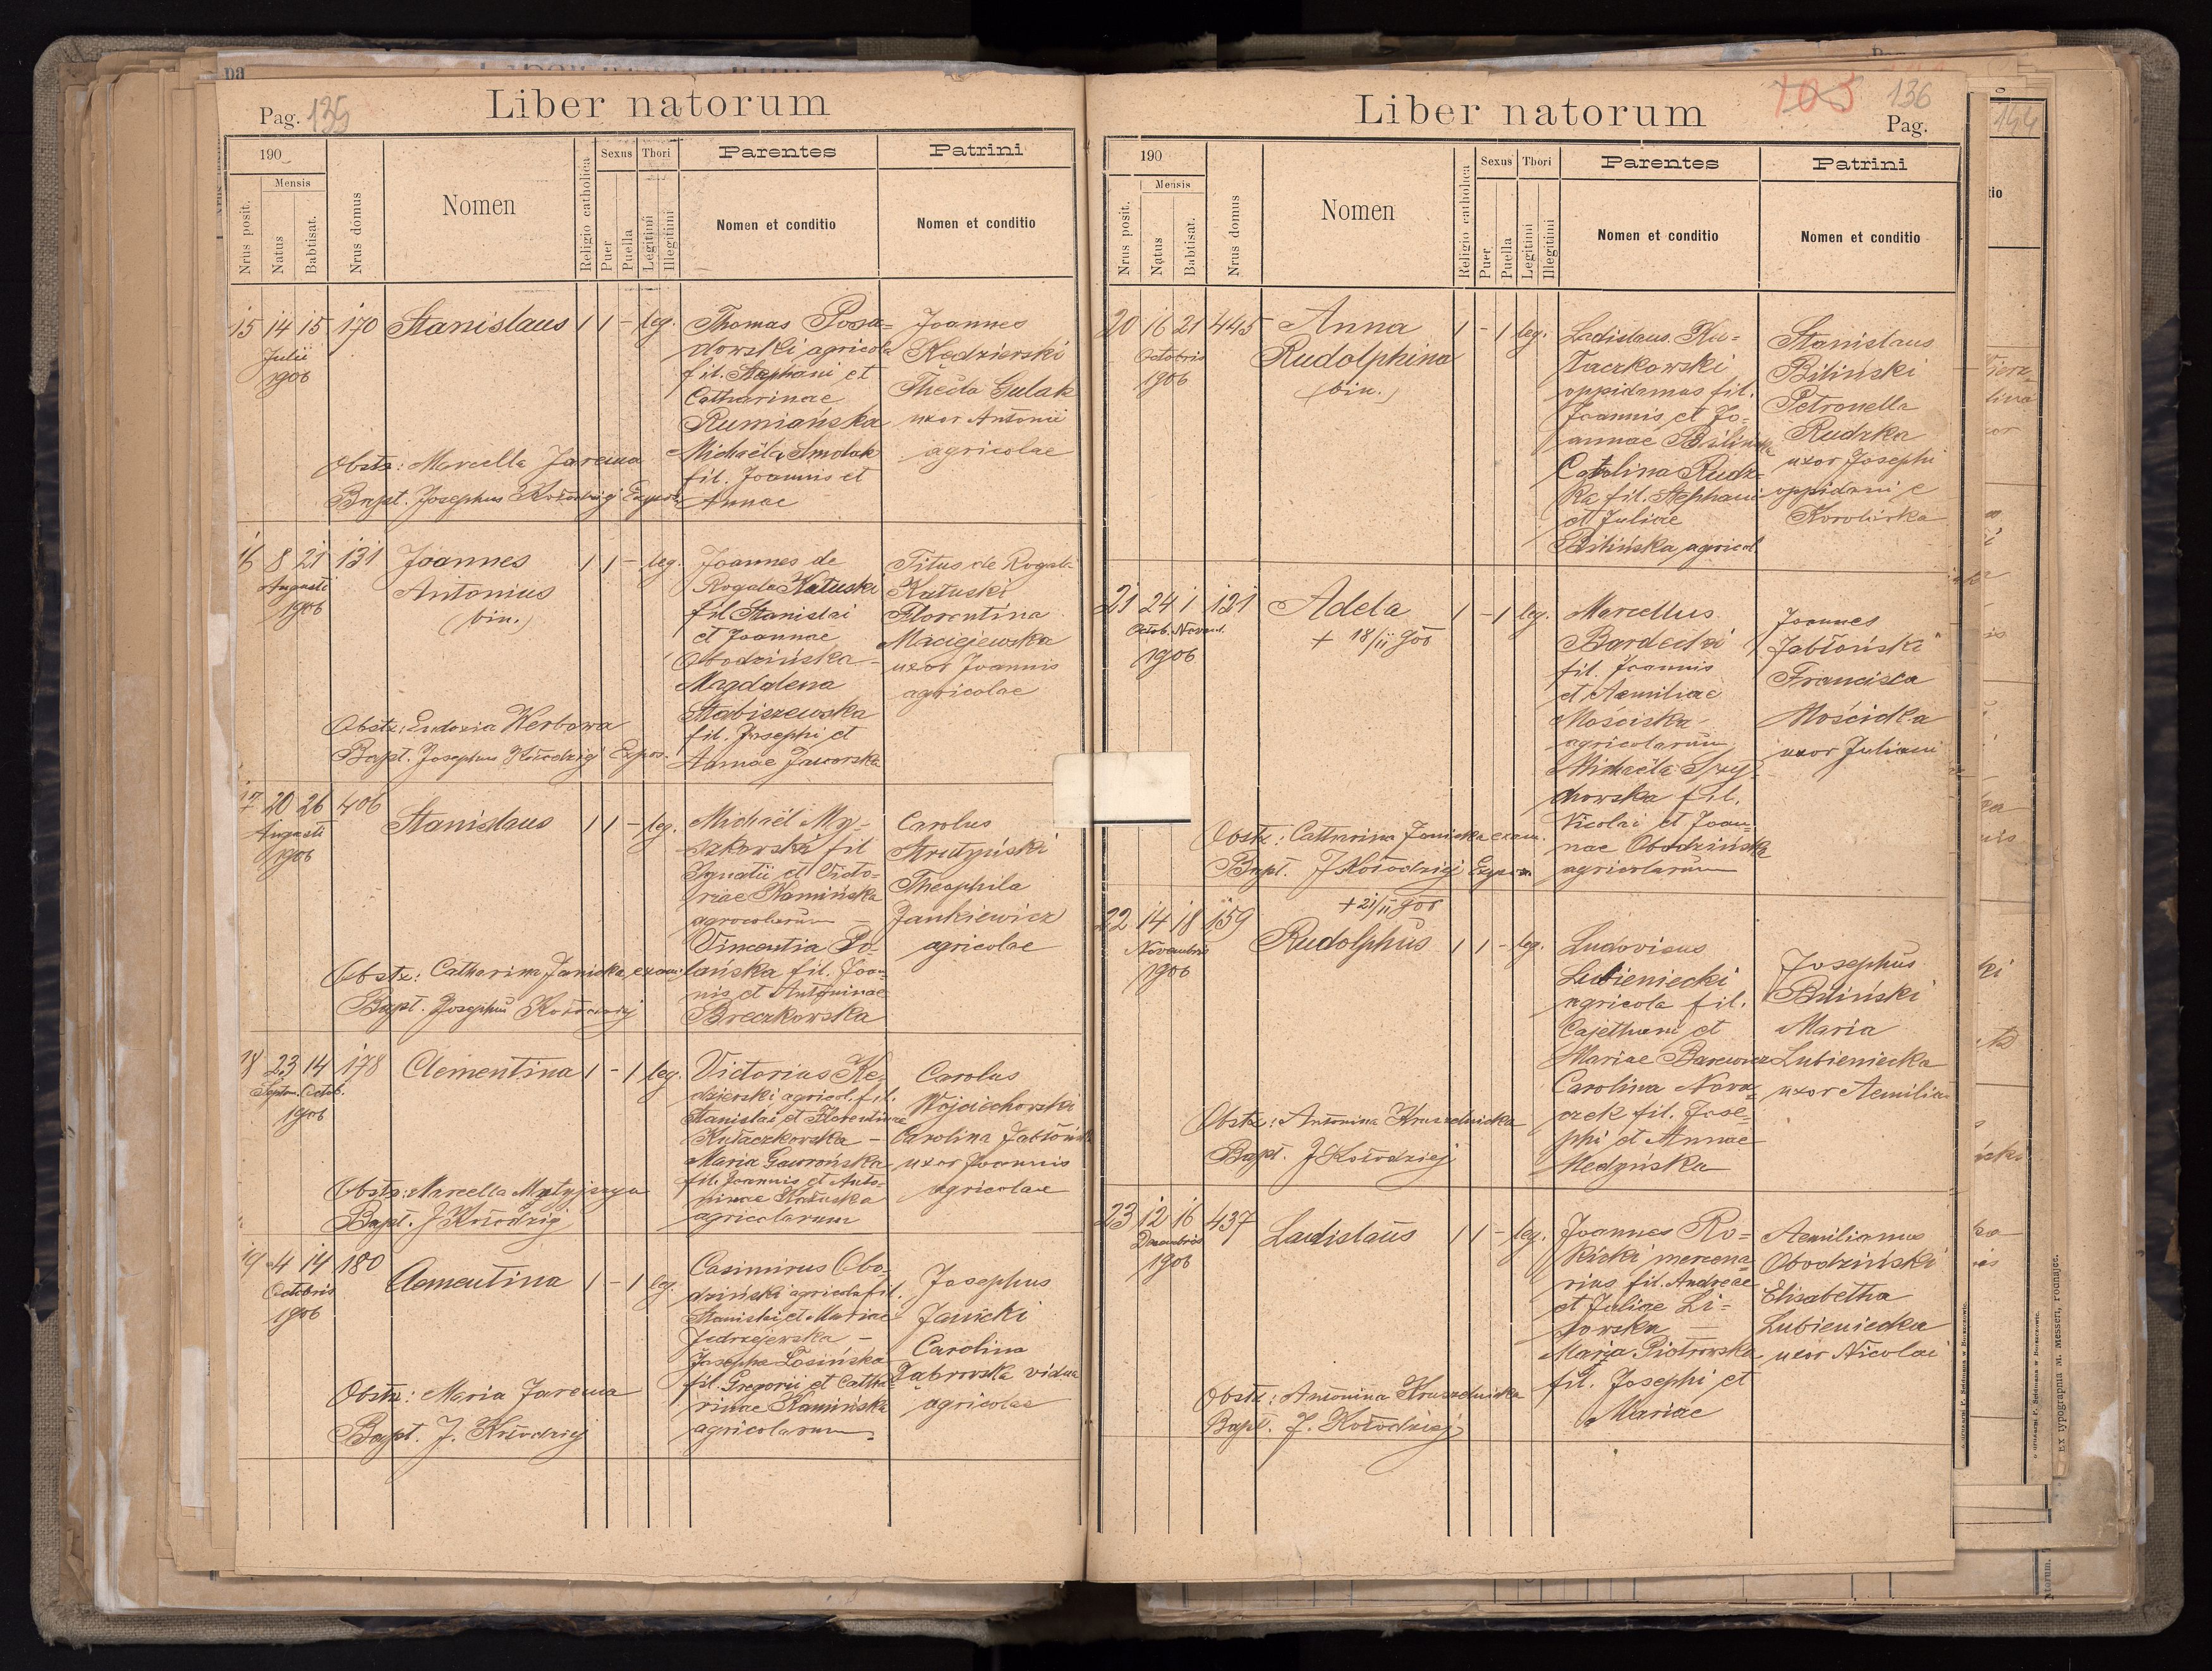 Pag. 135
Liber natorum
190
Mensis
Nrus posit.
Natus
Babtisat.
Nrus domus
Nomen
Religio catholica
Sexus
Puer
Puella
Thori
Legitimi
Illegitimi
Parentes
Nomen et conditio
Patrini
Nomen et conditio
15 14 15 170 Stanislaus 1 1 - leg.
Julii
1906
Thomas Posa-
dowski agricola
fil. Stephani et
Catharinae
Rumiańska
Michaëla Smolak
fil. Joannis et
Annae
Joannes
Kędzierski
Thecla Gulak
uxor Antonii
agricolae
Obstz: Marcella Jarema
Bapt. Josephus Kołodziej Expos.
16 8 21 131 Joannes 1 1 - leg.
Augusti
1906
Antonius
(bin.)
Joannes de
Rogala Katuski
fil Stanislai
et Joannae
Obodzińska -
Magdalena
Stabiszewska
fil. Josephi et
Annae Jaworska
Titus de Rogala
Katuski
Florentina
Maciejewska
uxor Joannis
agricolae
Obstz: Eudoxia Werbowa
Bapt. Josephus Kołodziej Expos.
17 20 26 406 Stanislaus 1 1 - leg.
Augusti
1906
Michaël My-
szkowski fil
Ignatii et Victo-
riae Kamińska
agricolarum -
Vincentia Po-
lańska fil. Joan-
nis et Antoninae
Breczkowska
Carolus
Strutyński
Theophila
Jankiewicz
agricolae
Obstz: Catharina Janicka exam.
Bapt. Josephus Kołodziej
18 23 14 178 Clementina 1 - 1 leg.
Septem. Octob.
1906
Victorius Kę-
dzierski agricol. fil.
Stanislai et Florentinae
Kułaczkowska -
Maria Gawrońska
fil. Joannis et Anto-
ninae Katuska
agricolarum
Carolus
Wojciechowski
Carolina Jabłońska
uxor Joannis
agricolae
Obstz: Marcella
Bapt. J Kołodziej
19 4 14 180 Clementina 1 - 1 leg.
Octobris
1906
Casimirus Obo-
dziński agricola fil.
Stanislai et Mariae
Jędrzejewska -
Josepha Łosińska
fil. Gregorii et Catha-
rinae Kamińska
agricolarum
Josephus
Janicki
Carolina
Dąbrowska vidua
agricolae
Obstz: Maria Jarema
Bapt. J. Kołodziej
Liber natorum
103 136
Pag.
190
Mensis
Nrus posit.
Natus
Babtisat.
Nrus domus
Nomen
Religio catholica
Sexus
Puer
Puella
Thori
Legitimi
Illegitimi
Parentes
Nomen et conditio
Patrini
Nomen et conditio
20 16 21 445 Anna 1 - 1 leg.
Octobris
1906
Rudolphina
(bin.)
Ladislaus Ku-
łaczkowski
oppidanus fil.
Joannis et Jo-
annae Bilińska
Carolina Rudz-
ka fil. Stephani
et Juliae
Bilińska agricol.
Stanislaus
Biliński
Petronella
Rudzka
uxor Josephi
oppidani e
Korolówka
21 24 1 121 Adela 1 - 1 leg.
Octob. Novem.
1906
+ 18/II 908
Marcellus
Bardecki
fil. Joannis
et Aemiliae
Mościska
agricolarum
Michaëla Szy-
chowska fil.
Nicolai et Joan-
nae Obodzińska
agricolarum
Joannes
Jabłoński
Francisca
Mościcka
uxor Juliani
Obstz: Catharina Janicka exam.
Bapt. J Kołodziej Expos.
22 14 18 159 Rudolphus 1 1 - leg.
+ 21/II 908
Novembris
1906
Ludovicus
Lubieniecki
agricola fil.
Cajethani et
Mariae Barewicz
Carolina Nowa-
czek fil. Jose-
phi et Annae
Medyńska
Josephus
Biliński
Maria
Lubieniecka
uxor Aemilian
Obstz: Antonina Kruszelnicka
Bapt. J Kołodziej
23 12 16 437 Ladislaus 1 1 - leg.
Decembris
1906
Joannes Ro-
kicki mercena-
rius fil. Andreae
et Juliae Li-
sowska -
Maria Piotrowska
fil. Josephi et
Mariae
Aemilianus
Obodziński
Elisabetha
Lubieniecka
uxor Nicolai
Obstz: Antonina Kruszelnicka
Bapt. J. Kołodziej
144
Ex typographia M. Messeri, rohonajec.